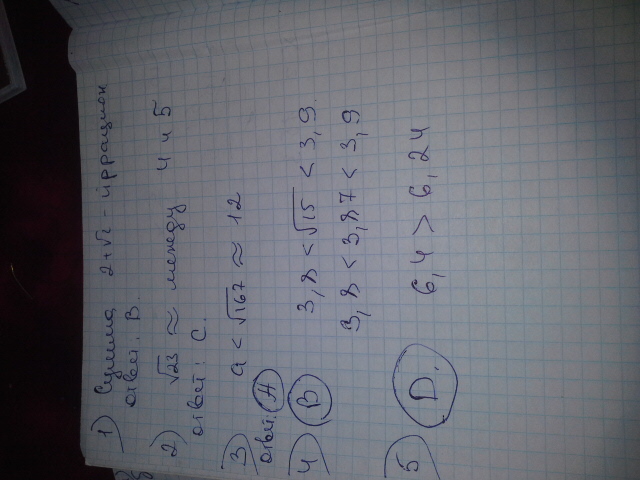 1) Сумма 2+√2 - иррацион
ответ: В.
2) √23 ≈ между 4 и 5
ответ: С.
3) а < √167 ≈ 12
ответ: А
4) В 3,8 < √15 < 3,9.
3,8 < 3,87 < 3,9
5) D. 6,4 > 6,24